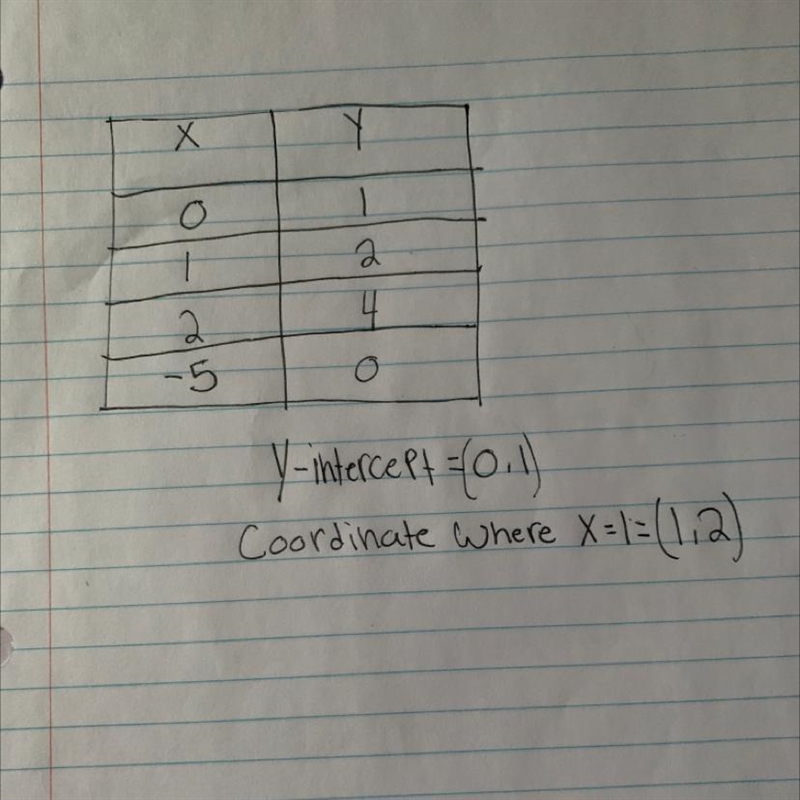 X Y
0 1
1 2
2 4
-5 0
Y-intercept =(0,1)
Coordinate where X=1=(1,2)